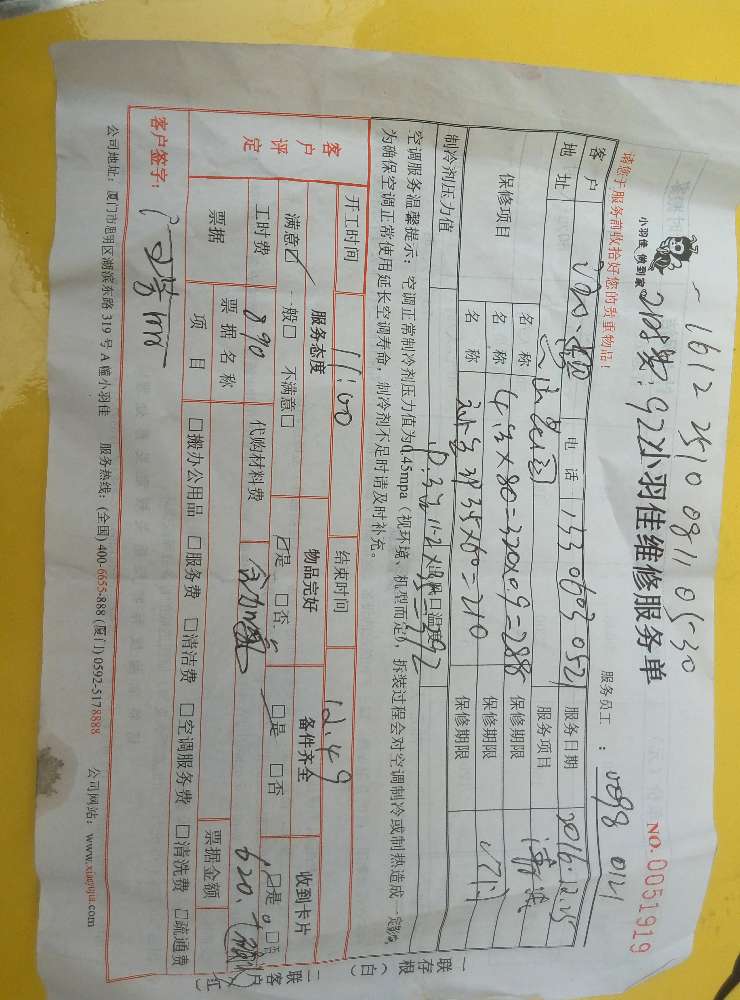 1612 2510 0811 0530
小羽佳 做到家
922小羽佳维修服务单
NO. 0051919
请您于服务前收拾好您的贵重物品!
服务员工:
客户
电话
服务日期 2016.12.25
地址
服务项目
保修项目
名称 4台×80=320×0.9=288
保修期限
名称
保修期限
名称
保修期限
制冷剂压力值
出风口温度
空调服务温馨提示:空调正常制冷剂压力值为0.45mpa(视环境、机型而定),拆装过程会对空调制冷或制热造成一定影响
为确保空调正常使用延长空调寿命,制冷剂不足时请及时补充。
开工时间 11:00 结束时间 12:49
客户评定
服务态度 物品完好 备件齐全 收到卡片
满意☑ 一般□ 不满意□ ☑是 □否 □是 □否 □是 □否
工时费 890 代购材料费 620
票据 票据名称 票据金额
项目 □搬办公用品 □服务费 □清洁费 □空调服务费 □清洗费 □疏通费
客户签字:
公司地址:厦门市思明区湖滨东路319号A幢小羽佳 服务热线:(全国)400-6655-888 (厦门)0592-5178888 公司网站:www.xiaoyujia.com
一联存根(白)
二联客户(红)